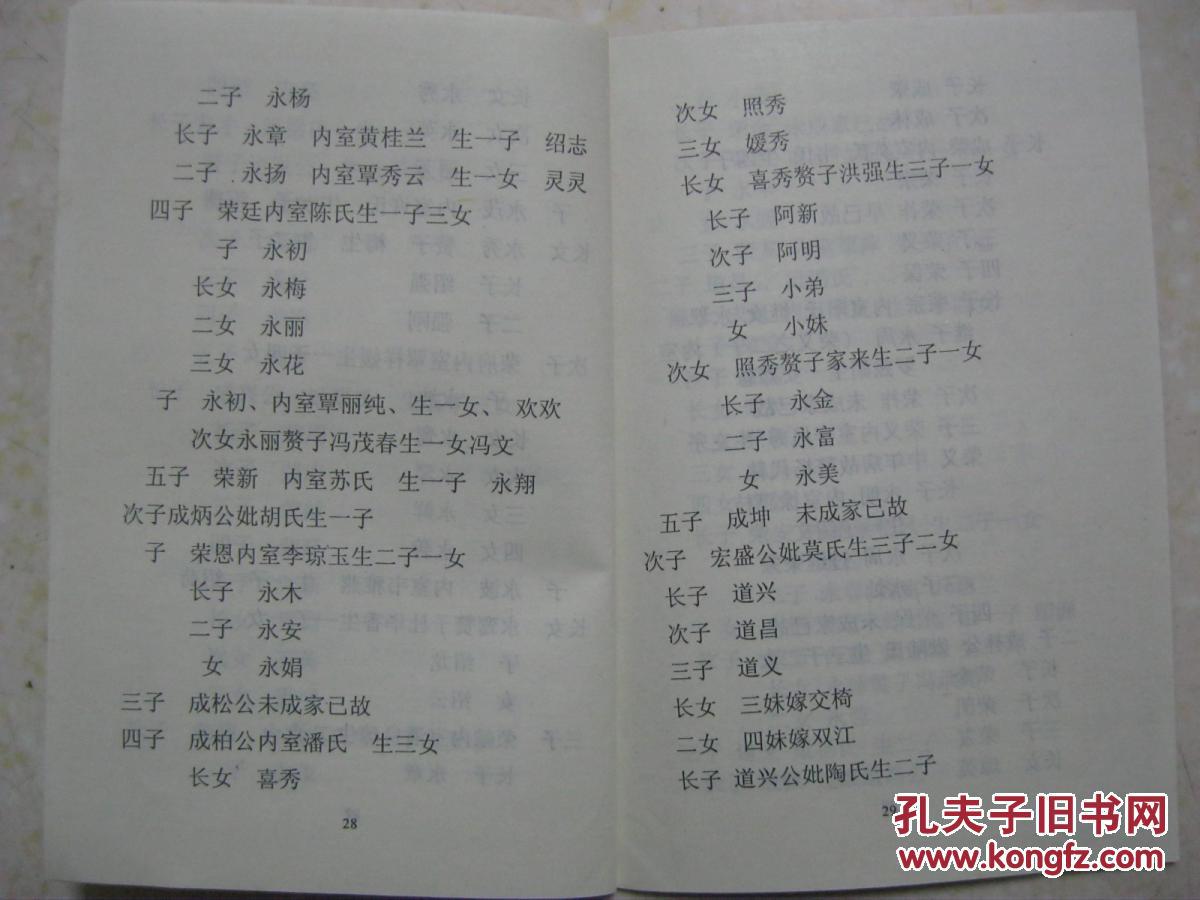 二子 永杨
长子 永章 内室黄桂兰 生一子 绍志
二子 永扬 内室覃秀云 生一女 灵灵
四子 荣廷内室陈氏生一子三女
子 永初
长女 永梅
二女 永丽
三女 永花
子 永初、内室覃丽纯、生一女、欢欢
次女永丽赘子冯茂春生一女冯文
五子 荣新 内室苏氏 生一子 永翔
次子成炳公妣胡氏生一子
子 荣恩内室李琼玉生二子一女
长子 永木
二子 永安
女 永娟
三子 成松公未成家已故
四子 成柏公内室潘氏 生三女
长女 喜秀
28
次女 照秀
三女 媛秀
长女 喜秀赘子洪强生三子一女
长子 阿新
次子 阿明
三子 小弟
女 小妹
次女 照秀赘子家来生二子一女
长子 永金
二子 永富
女 永美
五子 成坤 未成家已故
次子 宏盛公妣莫氏生三子二女
长子 道兴
次子 道昌
三子 道义
长女 三妹嫁交椅
二女 四妹嫁双江
长子 道兴公妣陶氏生二子
29
孔夫子旧书网
www.kongfz.com